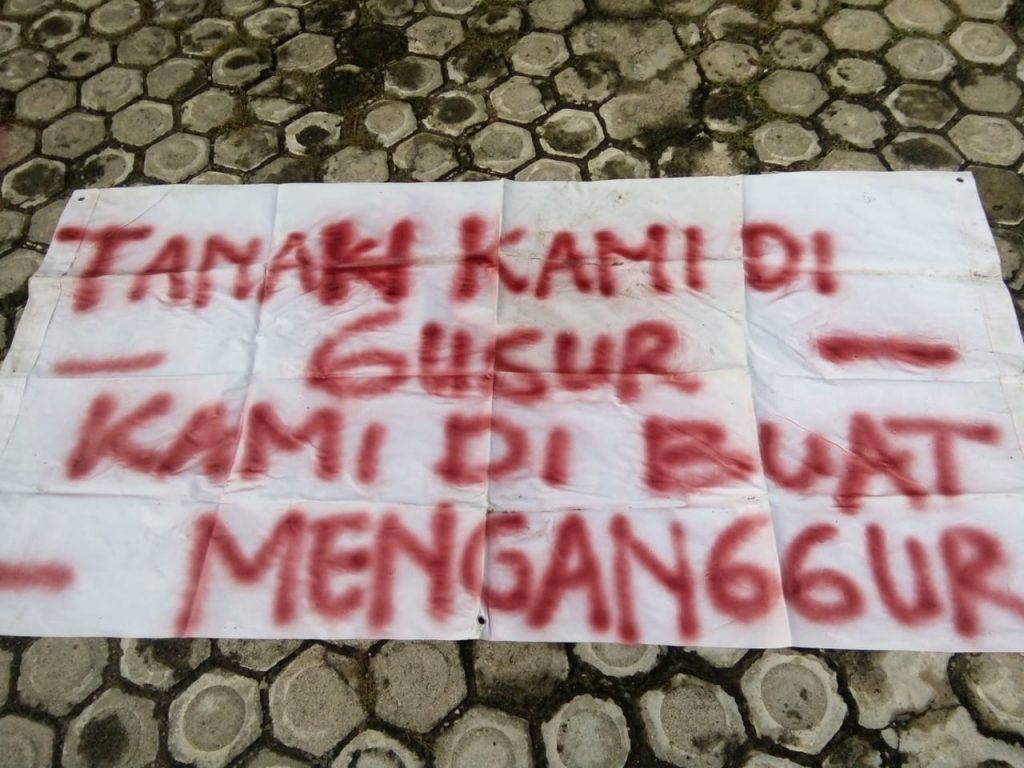 TANAH KAMI DI
- GUSUR -
KAMI DI BUAT
- MENGANGGUR